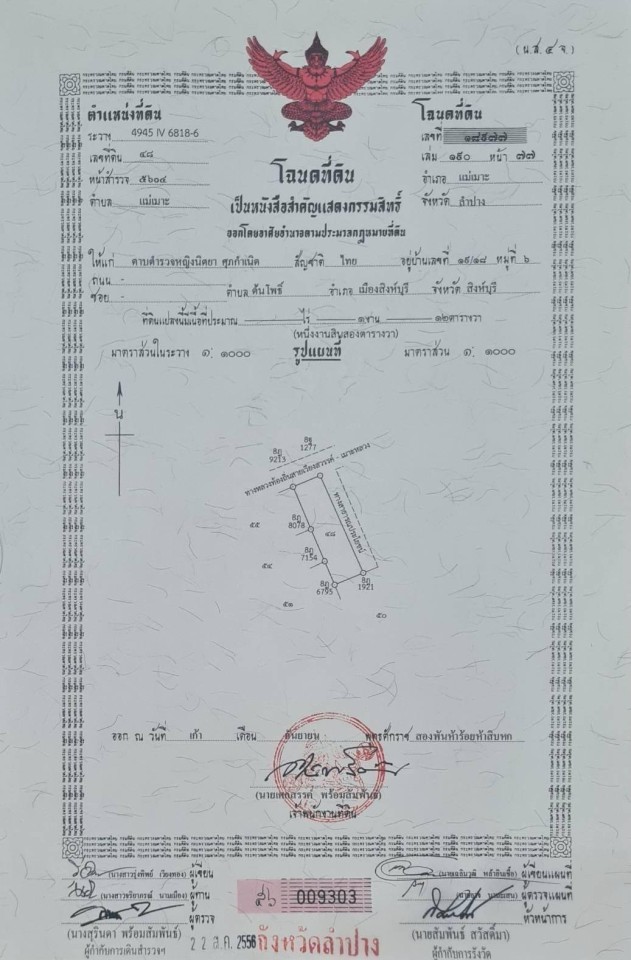 (น.ส.๔ จ.)
ตำแหน่งที่ดิน
ระวาง 4945 IV 6818-6
เลขที่ดิน ๔๘
หน้าสำรวจ ๕๖๐๔
ตำบล แม่เมาะ
โฉนดที่ดิน
เลขที่ ๑๘๙๗๗
เล่ม ๑๙๐ หน้า ๗๗
อำเภอ แม่เมาะ
จังหวัด ลำปาง
โฉนดที่ดิน
เป็นหนังสือสำคัญแสดงกรรมสิทธิ์
ออกโดยอาศัยอำนาจตามประมวลกฎหมายที่ดิน
ให้แก่ ดาบตำรวจหญิงนิตยา ศุภกำเนิด สัญชาติ ไทย อยู่บ้านเลขที่ ๑๙/๑๘ หมู่ที่ ๖
ถนน -
ซอย - ตำบล ต้นโพธิ์ อำเภอ เมืองสิงห์บุรี จังหวัด สิงห์บุรี
ที่ดินแปลงนี้มีเนื้อที่ประมาณ - ไร่ ๑ งาน ๑๒ ตารางวา
(หนึ่งงานสิบสองตารางวา)
มาตราส่วนในระวาง ๑: ๑๐๐๐ รูปแผนที่ มาตราส่วน ๑: ๑๐๐๐
น
9213
1277
ทางหลวงท้องถิ่นสายเวียงสวรรค์ - เมาะหลวง
ทางสาธารณประโยชน์
๕๕
8078
๔๘
7154
๕๔
6795
1921
๕๑
๕๐
ออก ณ วันที่ เก้า เดือน กันยายน พุทธศักราช สองพันห้าร้อยห้าสิบหก
พร้อมสัมพันธ์)
เจ้าพนักงานที่ดิน
(นางสาวรุ่งทิพย์ เวียงทอง) ผู้เขียน
ผู้เขียนแผนที่
ผู้ทาน
ผู้ตรวจแผนที่
ผู้ตรวจ
๕๖ 009303
หัวหน้าการ
(นางสุรินดา พร้อมสัมพันธ์)
22 ส.ค. 2556
จังหวัดลำปาง
(นายสัมพันธ์ สวัสดิ์มา)
ผู้กำกับการเดินสำรวจฯ
ผู้กำกับการรังวัด